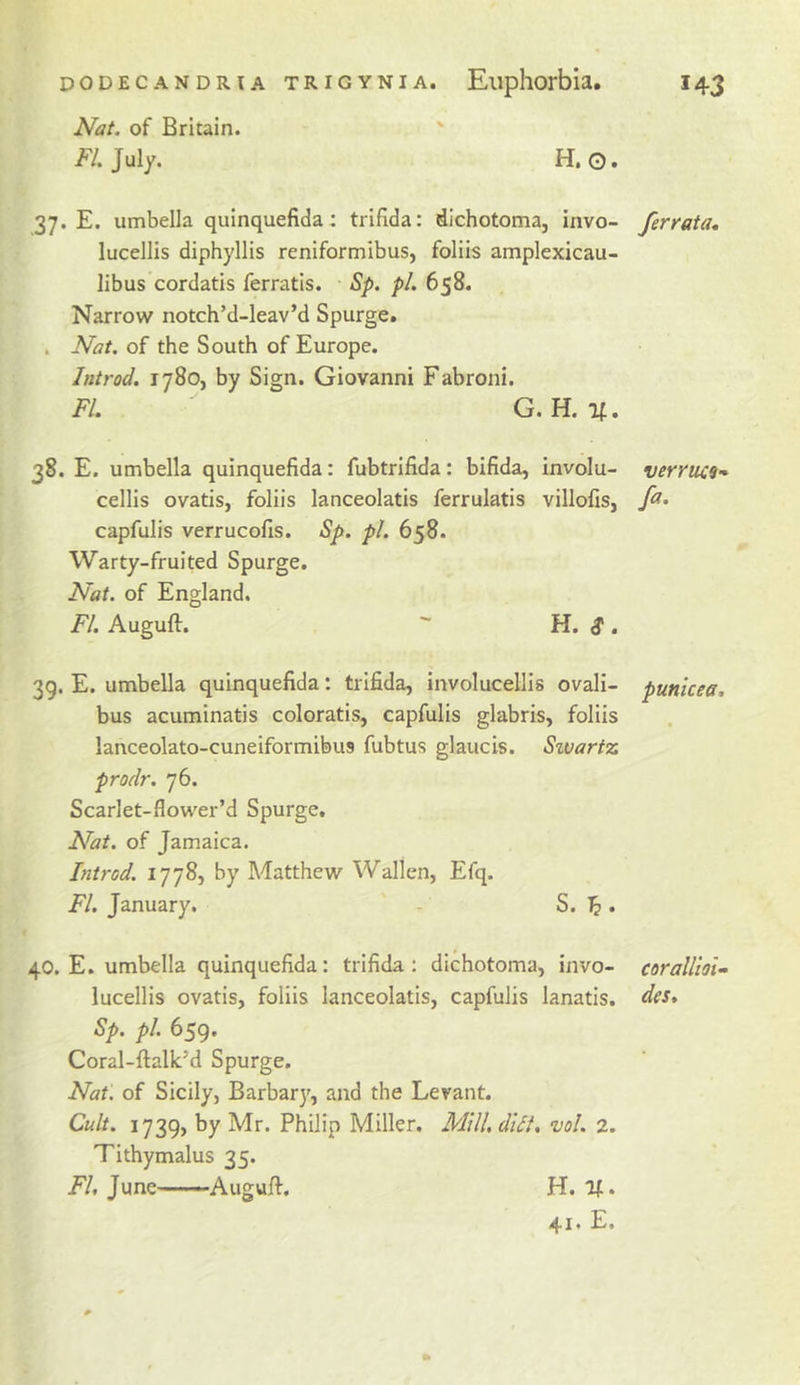 DODECANDRIA TRIGYNIA. Euphorbia. 143
Nat. of Britain.
Fl. July. H. ☉.
37. E. umbella quinquefida: trifida: dichotoma, invo- ſerrata.
lucellis diphyllis reniformibus, foliis amplexicau-
libus cordatis ſerratis. Sp. pl. 658.
Narrow notch'd-leav'd Spurge.
Nat. of the South of Europe.
Introd. 1780, by Sign. Giovanni Fabroni.
Fl. G. H. ♃.
38. E. umbella quinquefida: ſubtrifida: bifida, involu- verruco-
cellis ovatis, foliis lanceolatis ſerrulatis villoſis, ſa.
capſulis verrucoſis. Sp. pl. 658.
Warty-fruited Spurge.
Nat. of England.
Fl. Auguſt. H. ♂.
39. E. umbella quinquefida: trifida, involucellis ovali- punicea.
bus acuminatis coloratis, capſulis glabris, foliis
lanceolato-cuneiformibus ſubtus glaucis. Swartz
prodr. 76.
Scarlet-flower'd Spurge.
Nat. of Jamaica.
Introd. 1778, by Matthew Wallen, Eſq.
Fl. January. S. ♄.
40. E. umbella quinquefida: trifida: dichotoma, invo- corallioi-
lucellis ovatis, foliis lanceolatis, capſulis lanatis. des.
Sp. pl. 659.
Coral-ſtalk'd Spurge.
Nat. of Sicily, Barbary, and the Levant.
Cult. 1739, by Mr. Philip Miller. Mill. dict. vol. 2.
Tithymalus 35.
Fl. June——Auguſt. H. ♃.
41. E.